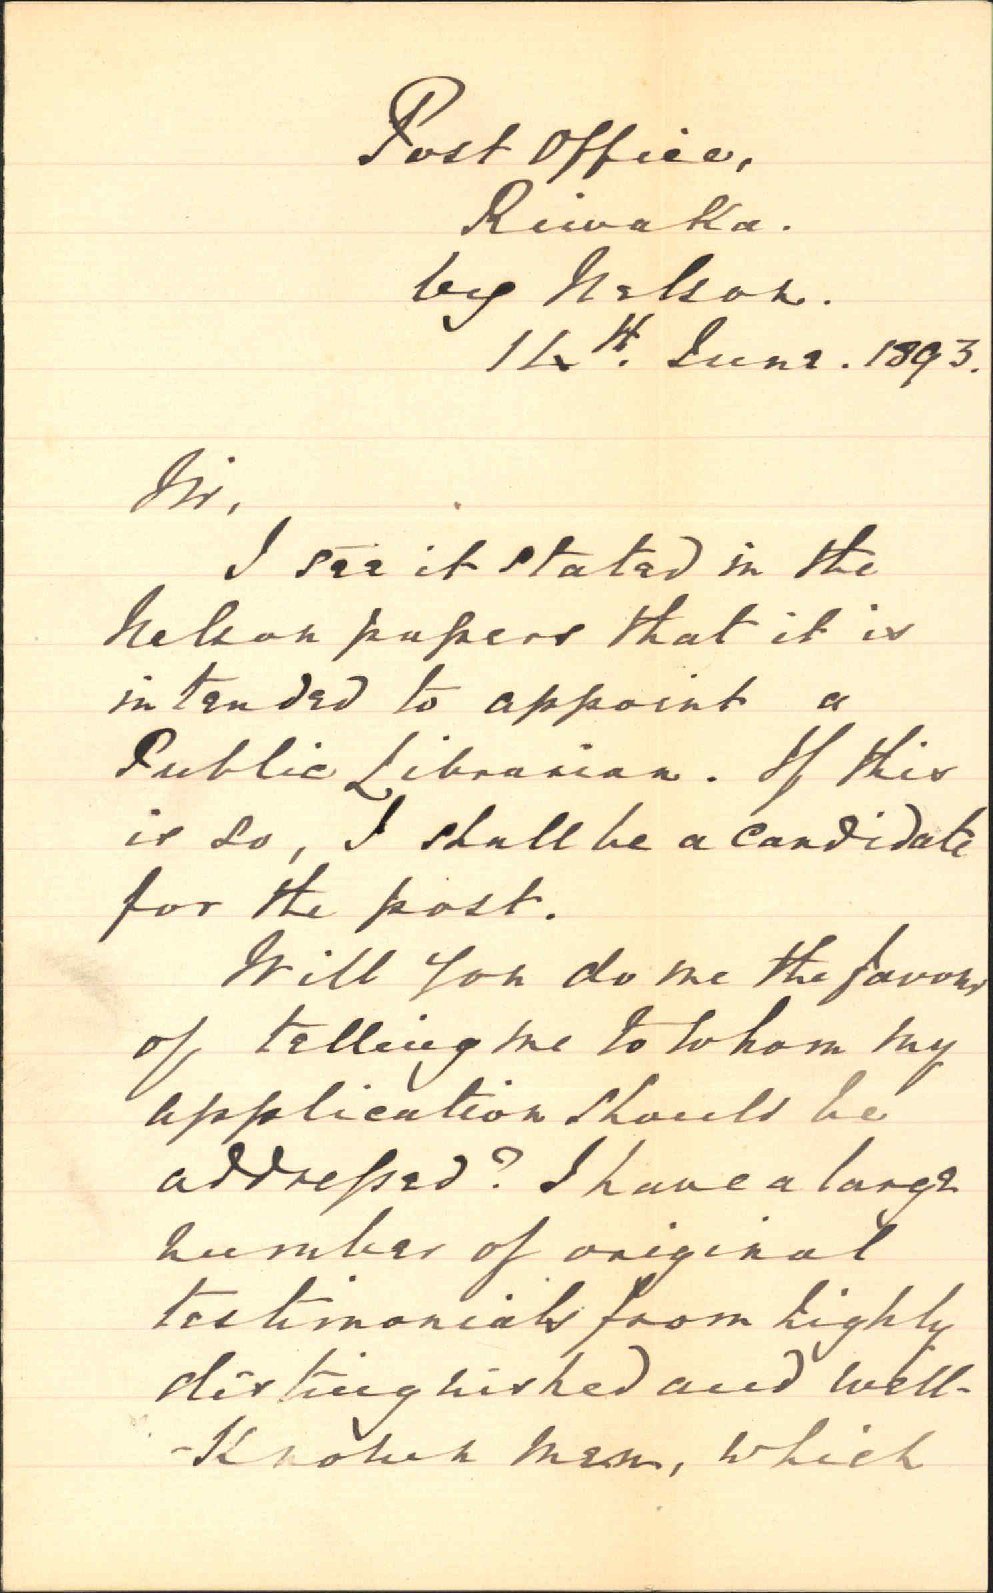 Post Office,
Riwaka.
by Nelson.
14th. June. 1893.
Sir,
I see it stated in the
Nelson papers that it is
intended to appoint a
Public Librarian. If this
is so, I shall be a candidate
for the post.
Will you do me the favour
of telling me to whom my
application should be
addressed? I have a large
number of original
testimonials from highly
distinguished and well-
-Known men, which